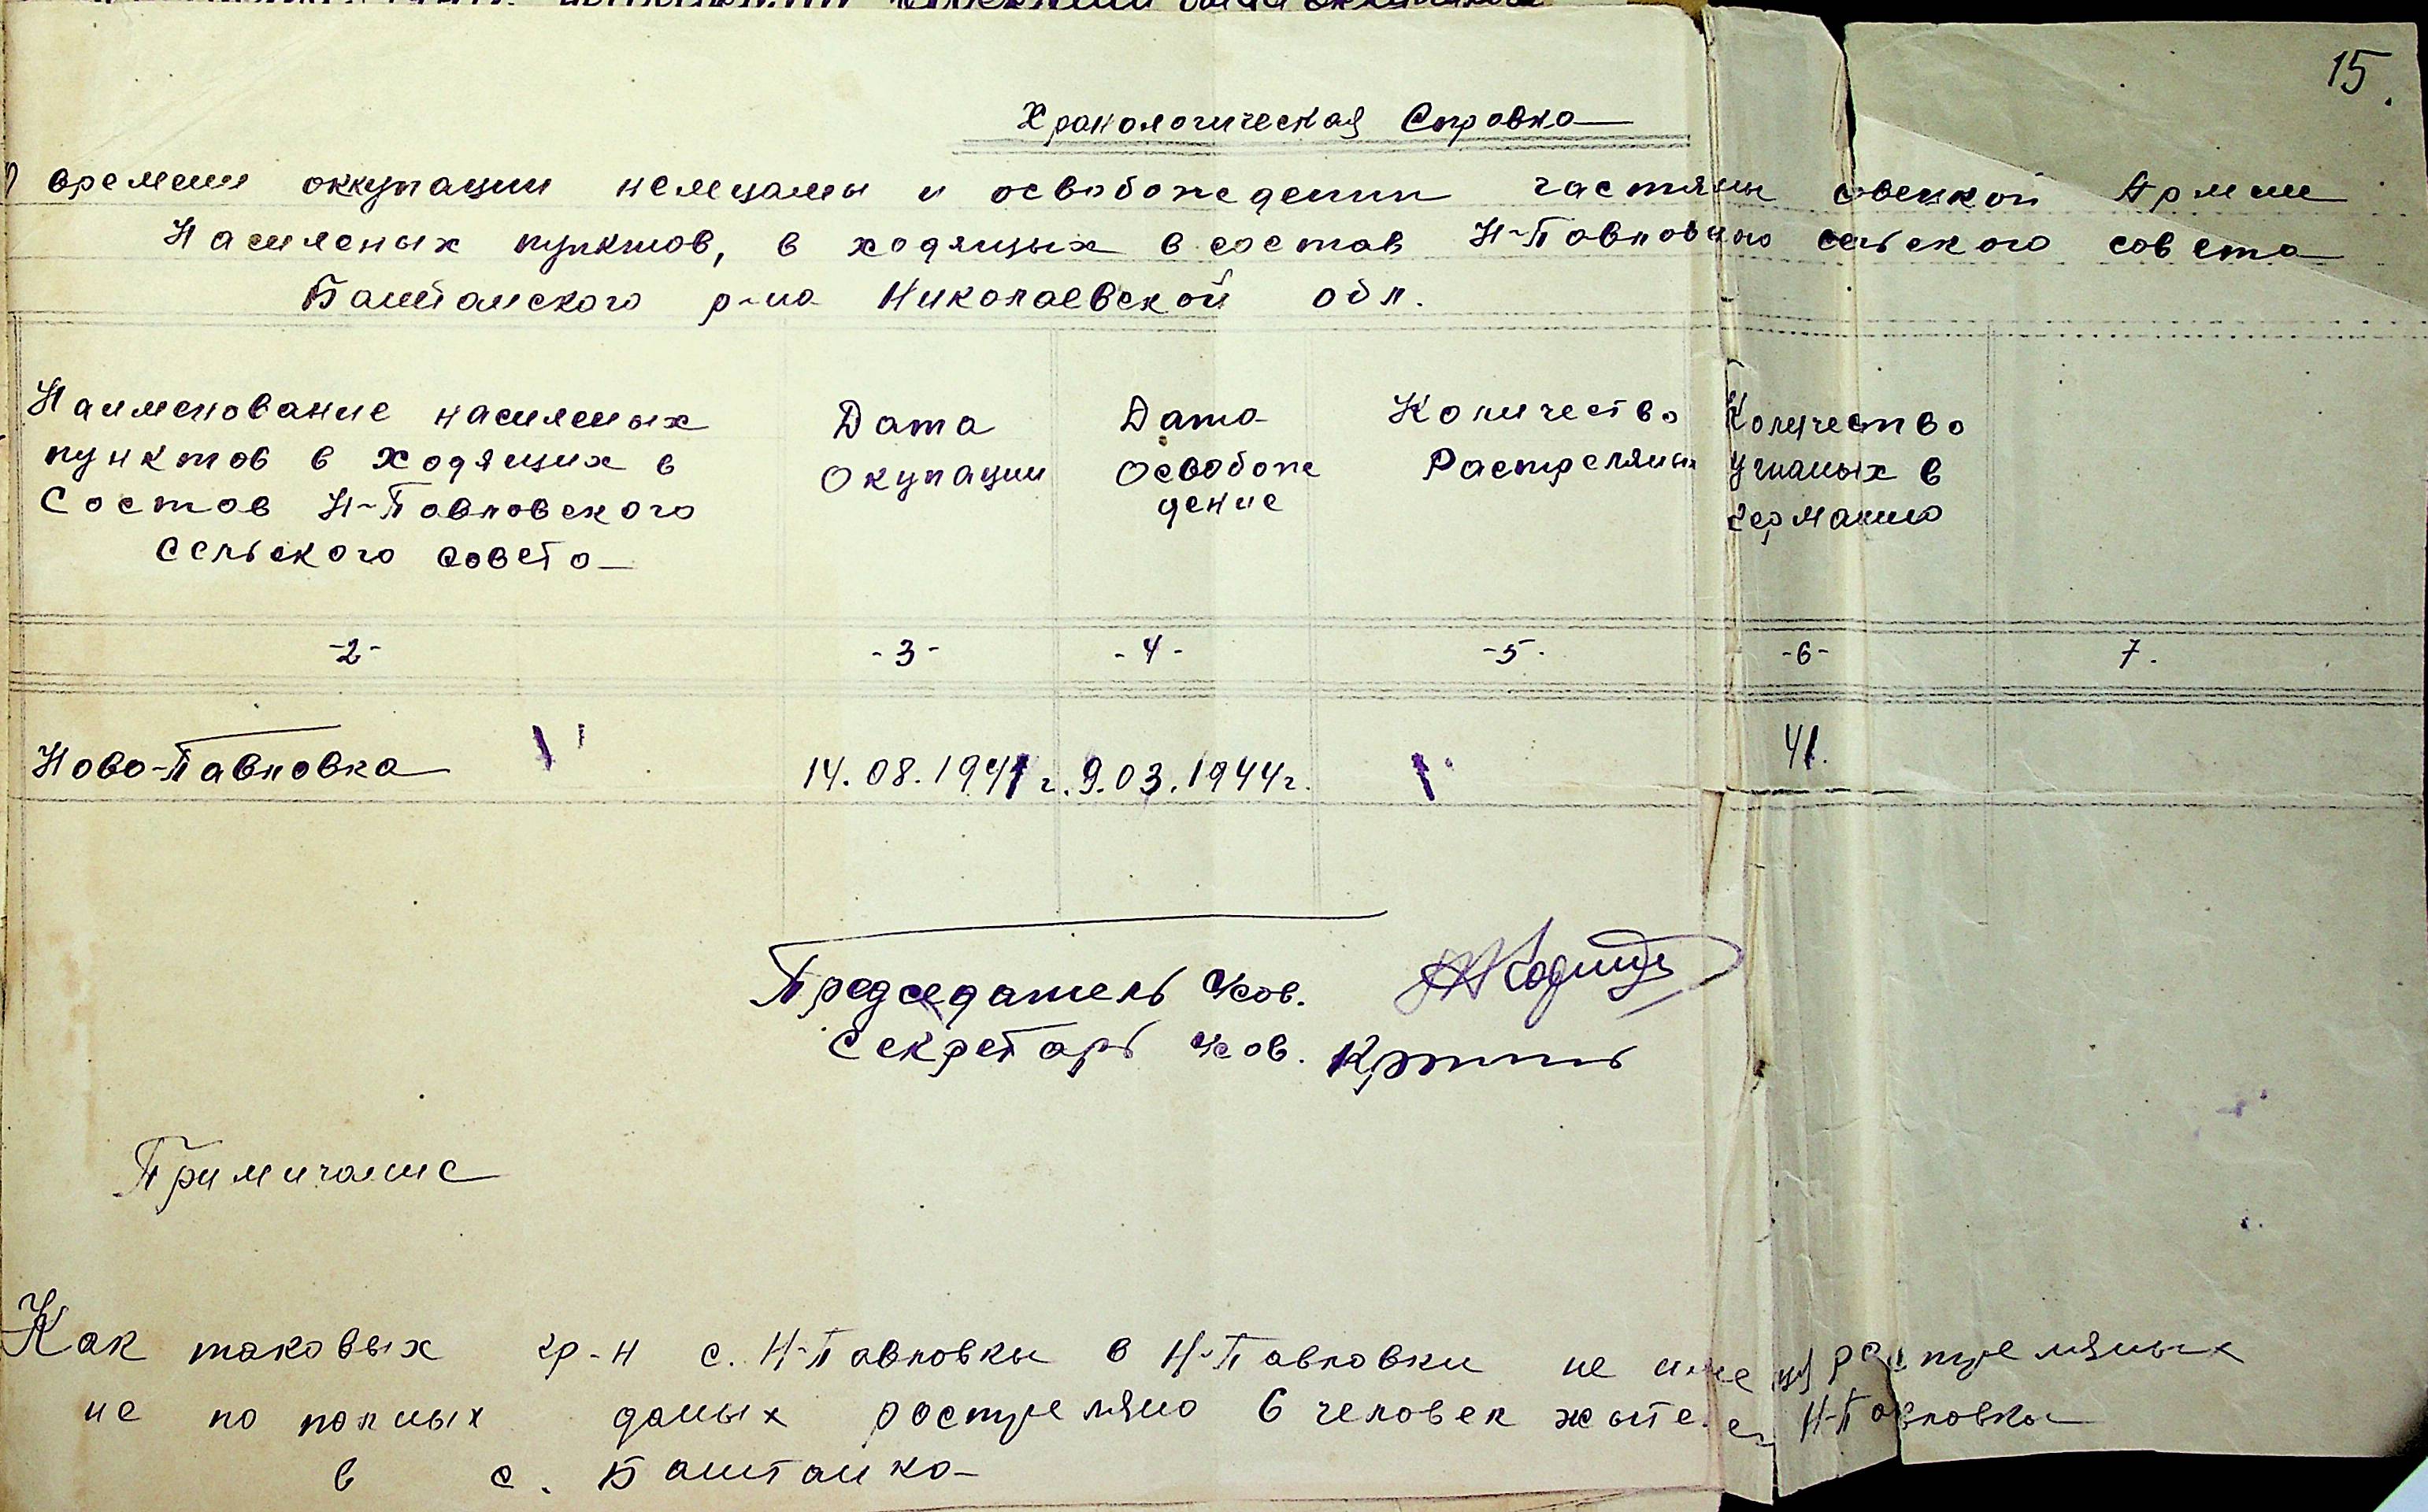 15.
Хранологическая Справка
О времени оккупации немцамы и освобождении частямы совецкой Армии
Населеных пунктов, в ходящых в состав Н-Павловского сельского совета
Баштанского р-на Николаевской обл.
Наименование населеных пунктов в ходящих в Состав Н-Павловского сельского совета
Дата Окупации
Дата Освобожде дение
Количество Растреляных
Количество Угнаных в Германию
-2- -3- -4- -5- -6- 7.
Ново-Павловка 14.08.1941 г. 9.03.1944г. 1 41.
Председатель
Секретарь
Примичание
Как таковых гр-н с. Н-Павловкы в Н-Павловки не растреляных
не по полных даных ростреляно 6 человек жытелей Н-Павловкы
в с. Баштанка